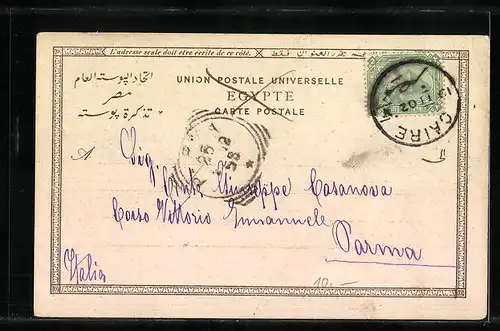 L'adresse seule doit être écrite de ce côté.
اتحاد البوسته العام
مصر
تذكرة بوسته
UNION POSTALE UNIVERSELLE
EGYPTE
CARTE POSTALE
CAIRE
Sig.
Giuseppe Casanova
Corso Vittorio Emanuele
Parma
Italia
10.-